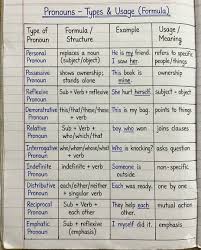 Pronouns – Types & Usage (Formula)
Type of Pronoun | Formula / Structure | Example | Usage / Meaning
Personal Pronoun | replaces a noun (subject/object) | He is my friend. I saw her. | refers to specific people/things
Possessive Pronoun | shows ownership; stands alone | This book is mine. | ownership
Reflexive Pronoun | Sub + Verb + reflexive | She hurt herself. | subject = object
Demonstrative Pronoun | this/that/these/those + verb | This is my bag. | points to things
Relative Pronoun | Sub + Verb + who/which/that | boy who won | joins clauses
Interrogative Pronoun | who/what/which/whose + verb | Who is knocking? | asks question
Indefinite Pronoun | indefinite + verb | Someone is outside. | non-specific
Distributive Pronoun | each/either/neither + singular verb | Each was ready. | one by one
Reciprocal Pronoun | Sub + Verb + each other | They help each other. | mutual action
Emphatic Pronoun | Sub + reflexive (emphasis) | I myself did it. | emphasis